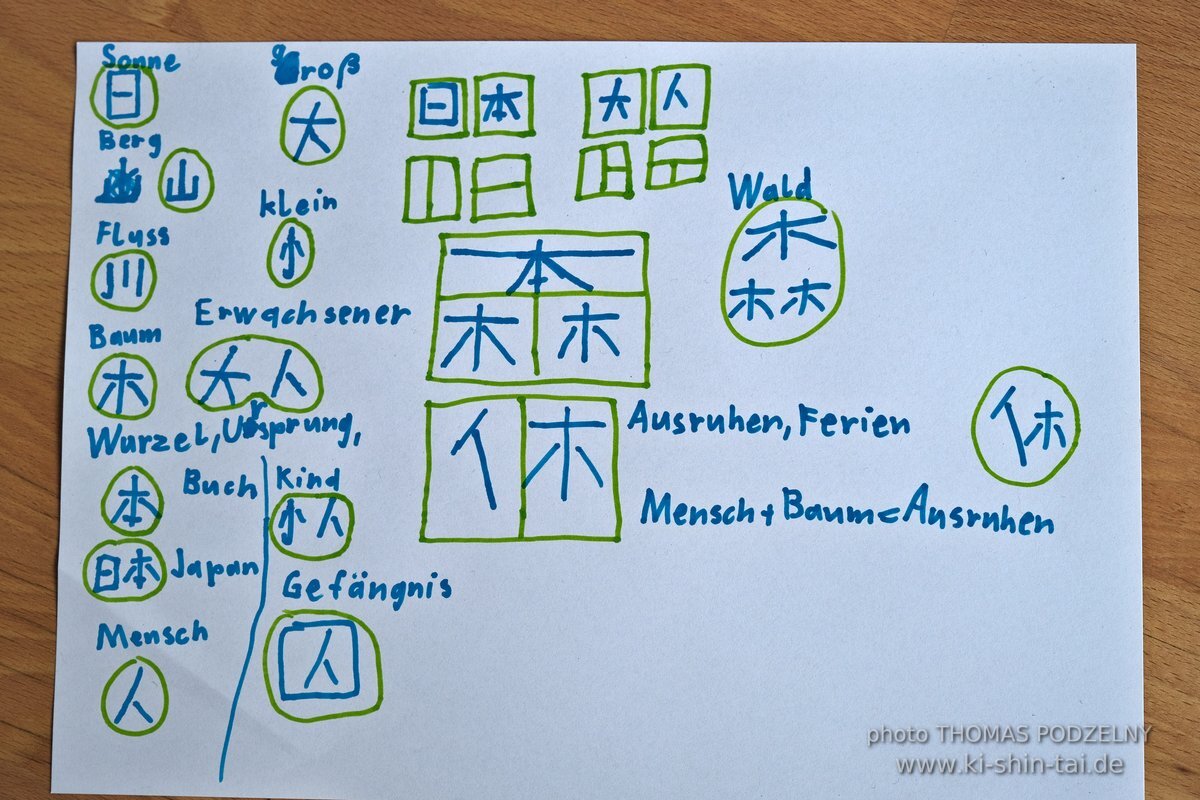 Sonne
日
Berg
山
Fluss
川
Baum
木
Wurzel, Ursprung,
本
Buch
日本 Japan
Mensch
人
groß
大
klein
小
Erwachsener
大人
Kind
小人
Gefängnis
囚
日本 大人
本
木 木
Wald
森
休
Ausruhen, Ferien
休
Mensch + Baum = Ausruhen
photo THOMAS PODZELNY
www.ki-shin-tai.de